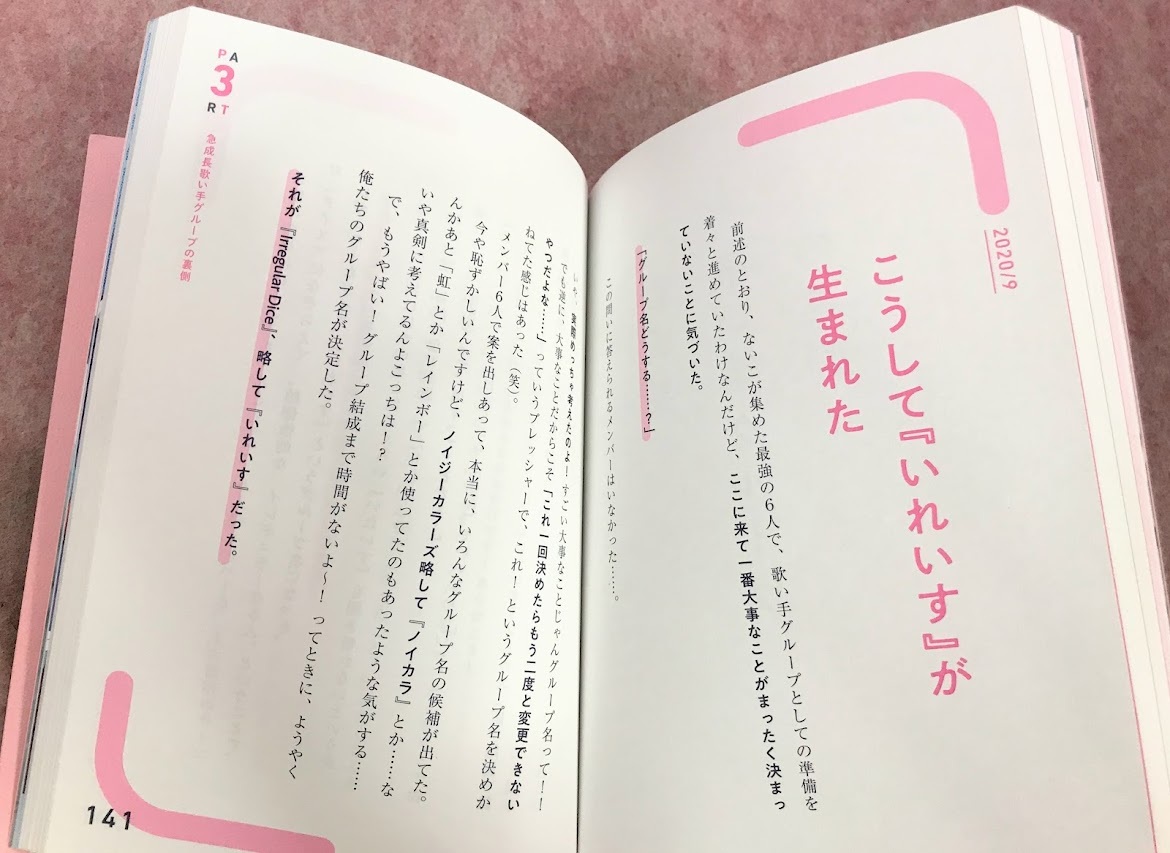 2020/9
こうして『いれいす』が
生まれた
前述のとおり、ないこが集めた最強の6人で、歌い手グループとしての準備を
着々と進めていたわけなんだけど、ここに来て一番大事なことがまったく決まっ
ていないことに気づいた。
「グループ名どうする……？」
この問いに答えられるメンバーはいなかった……。
いや、実際めっちゃ考えたのよ！すごい大事なことじゃんグループ名って！！
でも逆に、大事なことだからこそ「これ一回決めたらもう二度と変更できない
やつだよな……」っていうプレッシャーで、これ！というグループ名を決めか
ねてた感じはあった（笑）。
メンバー6人で案を出しあって、本当に、いろんなグループ名の候補が出てた。
今や恥ずかしいんですけど、ノイジーカラーズ略して『ノイカラ』とか……な
んかあと「虹」とか「レインボー」とか使ってたのもあったような気がする……
いや真剣に考えてるんよこっちは！？
で、もうやばい！グループ結成まで時間がないよ〜！ってときに、ようやく
俺たちのグループ名が決定した。
それが『Irregular Dice』、略して『いれいす』だった。
PART 3
急成長歌い手グループの裏側
141